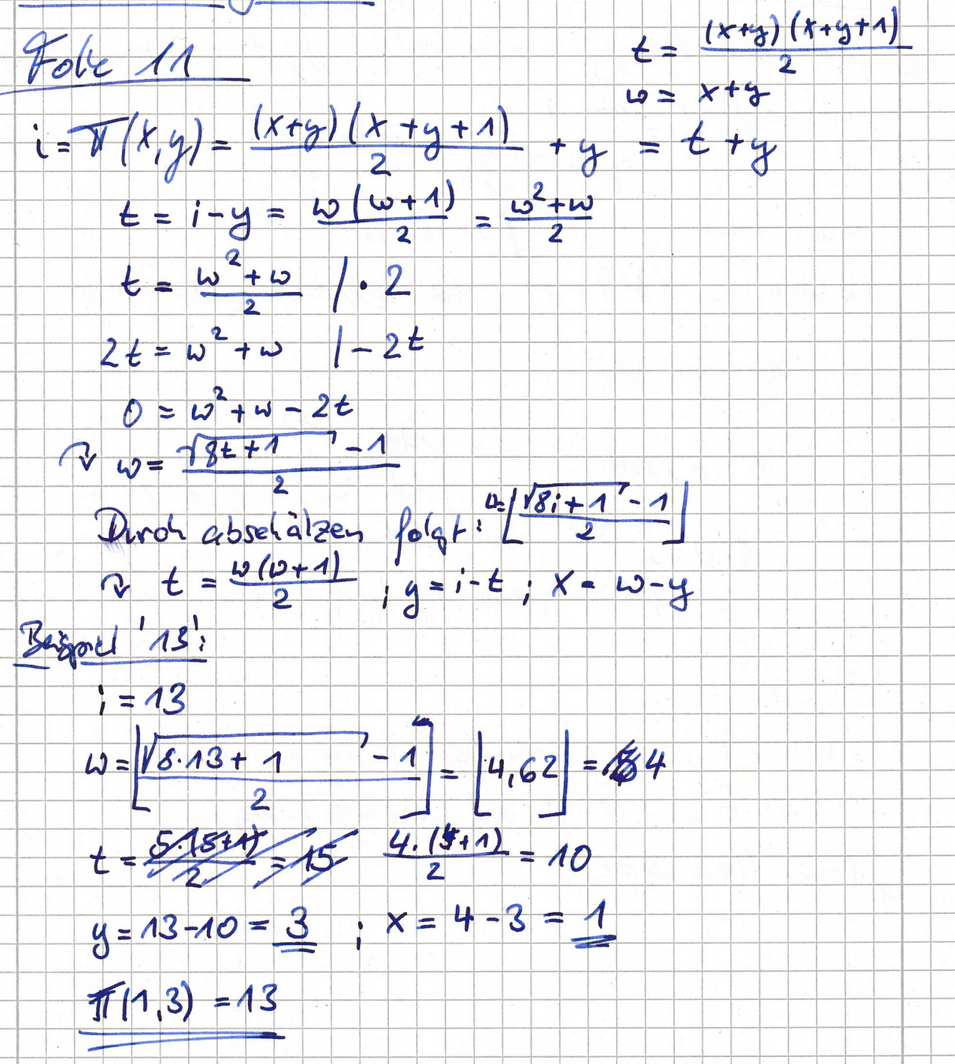 Folie 11
t = (x+y)(x+y+1)/2
w = x+y
i = π(x,y) = (x+y)(x+y+1)/2 + y = t + y
t = i-y = w(w+1)/2 = w²+w/2
t = w²+w/2 | · 2
2t = w²+w | - 2t
0 = w²+w - 2t
↷ w = √8t+1 - 1/2
Durch abschälzen folgt: w=⌊√8i+1 - 1/2⌋
↷ t = w(w+1)/2 ; y = i-t ; x = w-y
Beispiel '13':
i = 13
w = ⌊√8·13+1 - 1/2⌋ = ⌊4,62⌋ = 4
t = 5·(5+1)/2 = 15 4·(4+1)/2 = 10
y = 13-10 = 3 ; x = 4-3 = 1
π(1,3) = 13